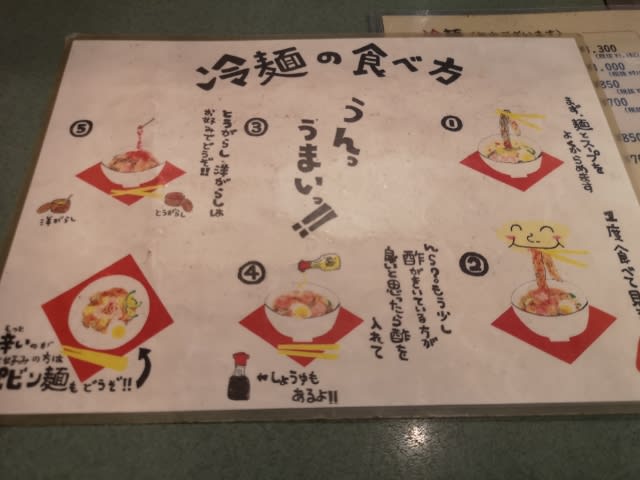 冷麺の食べ方
①
まず、麺とスープを
よくからめます
②
1度食べて
③
うんっ
うまいっ!!
④
んら?もう少し
酢がきいている方が
良いと思ったら酢を
入れて
しょうゆも
あるよ!!
⑤
とうがらし、洋がらしは
お好みでどうぞ!!
洋がらし
とうがらし
もっと
辛いのが
お好みの方は
ビビン麺もどうぞ!!
冷麺
¥1,300
1,000
850
700
850